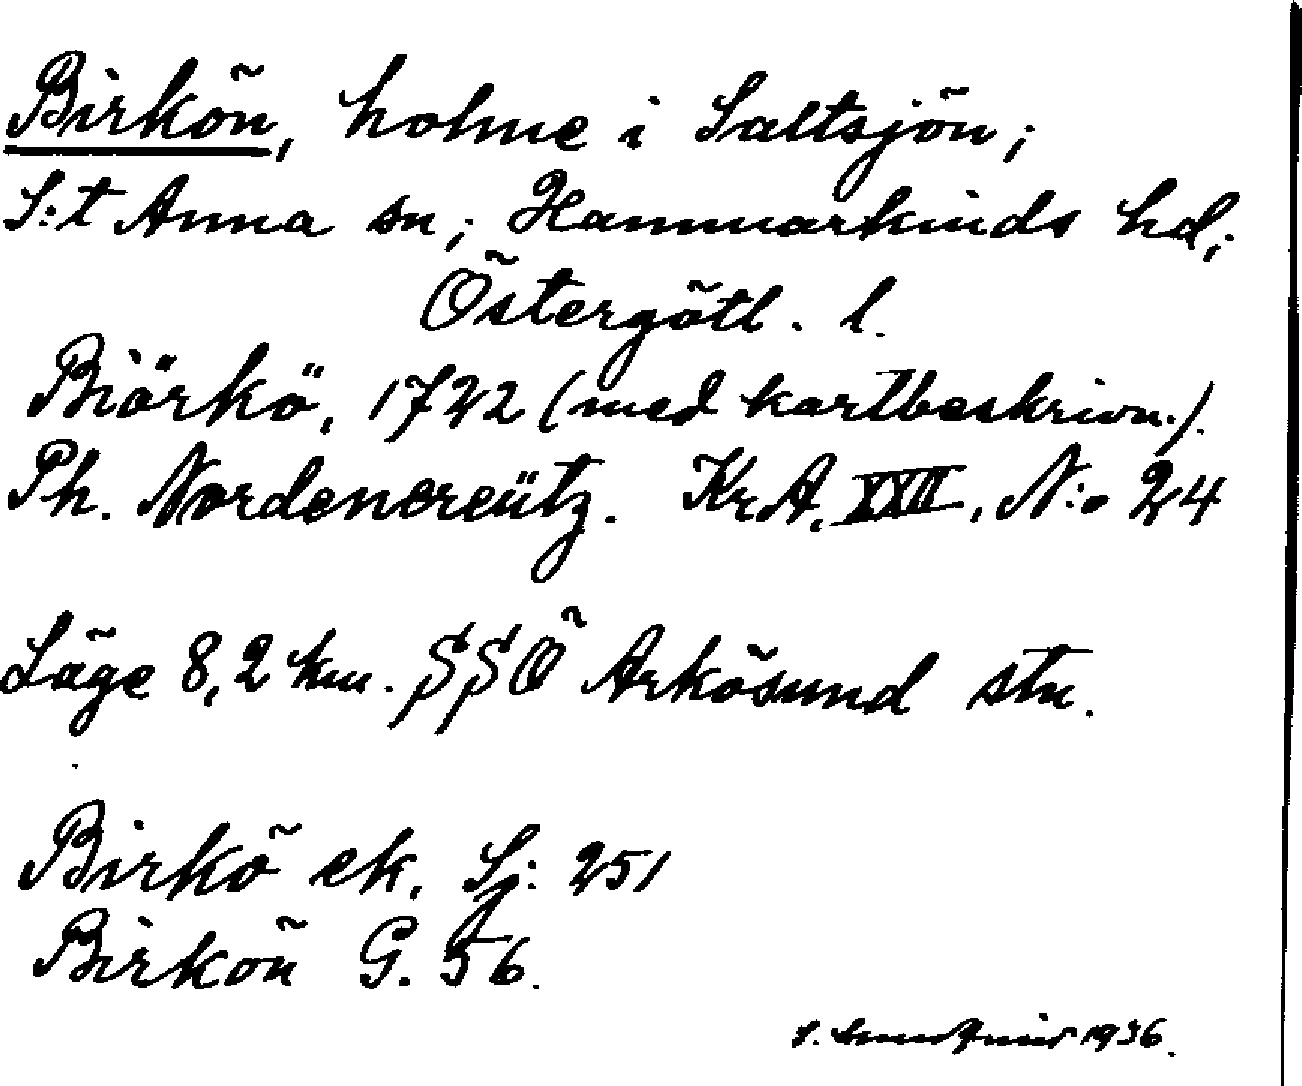 Birkön, holme i Saltsjön;
S:t Anna sn; Hammarkinds hd;
Östergötl. l.
Biörkö, 1722 (med kartbeskrivn.).
Ph. Nordencreütz. Kr.A. XXII, N:o 24
Läge 8,2 km. SSÖ Arkösund stn.
Birkö ek. Sj: 251
Birkön G. 56.
1936.